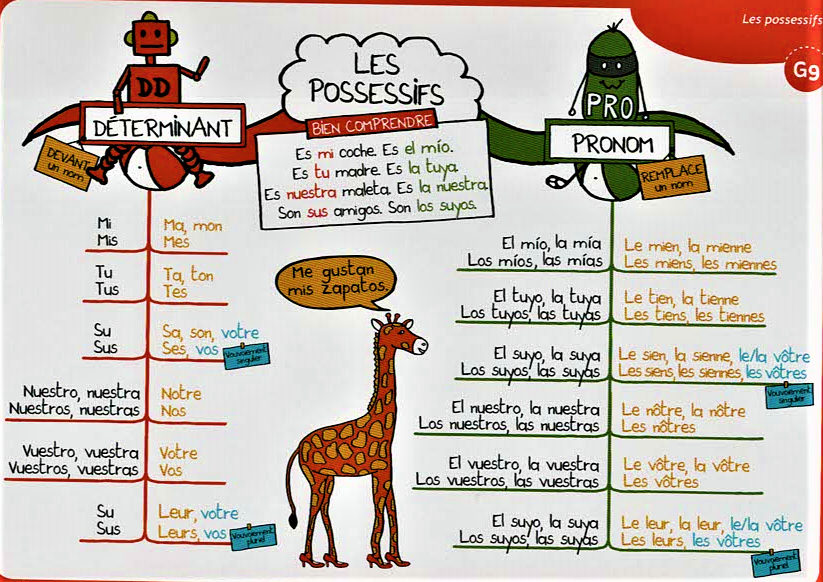 Les possessifs
G9
LES
POSSESSIFS
BIEN COMPRENDRE
Es mi coche. Es el mío.
Es tu madre. Es la tuya.
Es nuestra maleta. Es la nuestra.
Son sus amigos. Son los suyos.
DD
DÉTERMINANT
DEVANT
un nom
Mi
Mis
Ma, mon
Mes
Tu
Tus
Ta, ton
Tes
Su
Sus
Sa, son, votre
Ses, vos
Vouvoiement
singulier
Nuestro, nuestra
Nuestros, nuestras
Notre
Nos
Vuestro, vuestra
Vuestros, vuestras
Votre
Vos
Su
Sus
Leur, votre
Leurs, vos
Vouvoiement
pluriel
Me gustan
mis zapatos.
PRO
PRONOM
REMPLACE
un nom
El mío, la mía
Los míos, las mías
Le mien, la mienne
Les miens, les miennes
El tuyo, la tuya
Los tuyos, las tuyas
Le tien, la tienne
Les tiens, les tiennes
El suyo, la suya
Los suyos, las suyas
Le sien, la sienne, le/la vôtre
Les siens, les siennes, les vôtres
Vouvoiement
singulier
El nuestro, la nuestra
Los nuestros, las nuestras
Le nôtre, la nôtre
Les nôtres
El vuestro, la vuestra
Los vuestros, las vuestras
Le vôtre, la vôtre
Les vôtres
El suyo, la suya
Los suyos, las suyas
Le leur, la leur, le/la vôtre
Les leurs, les vôtres
Vouvoiement
pluriel